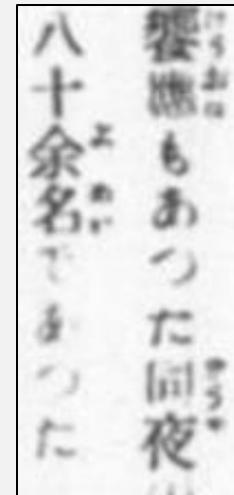 饗應もあつた同夜
八十余名であつた